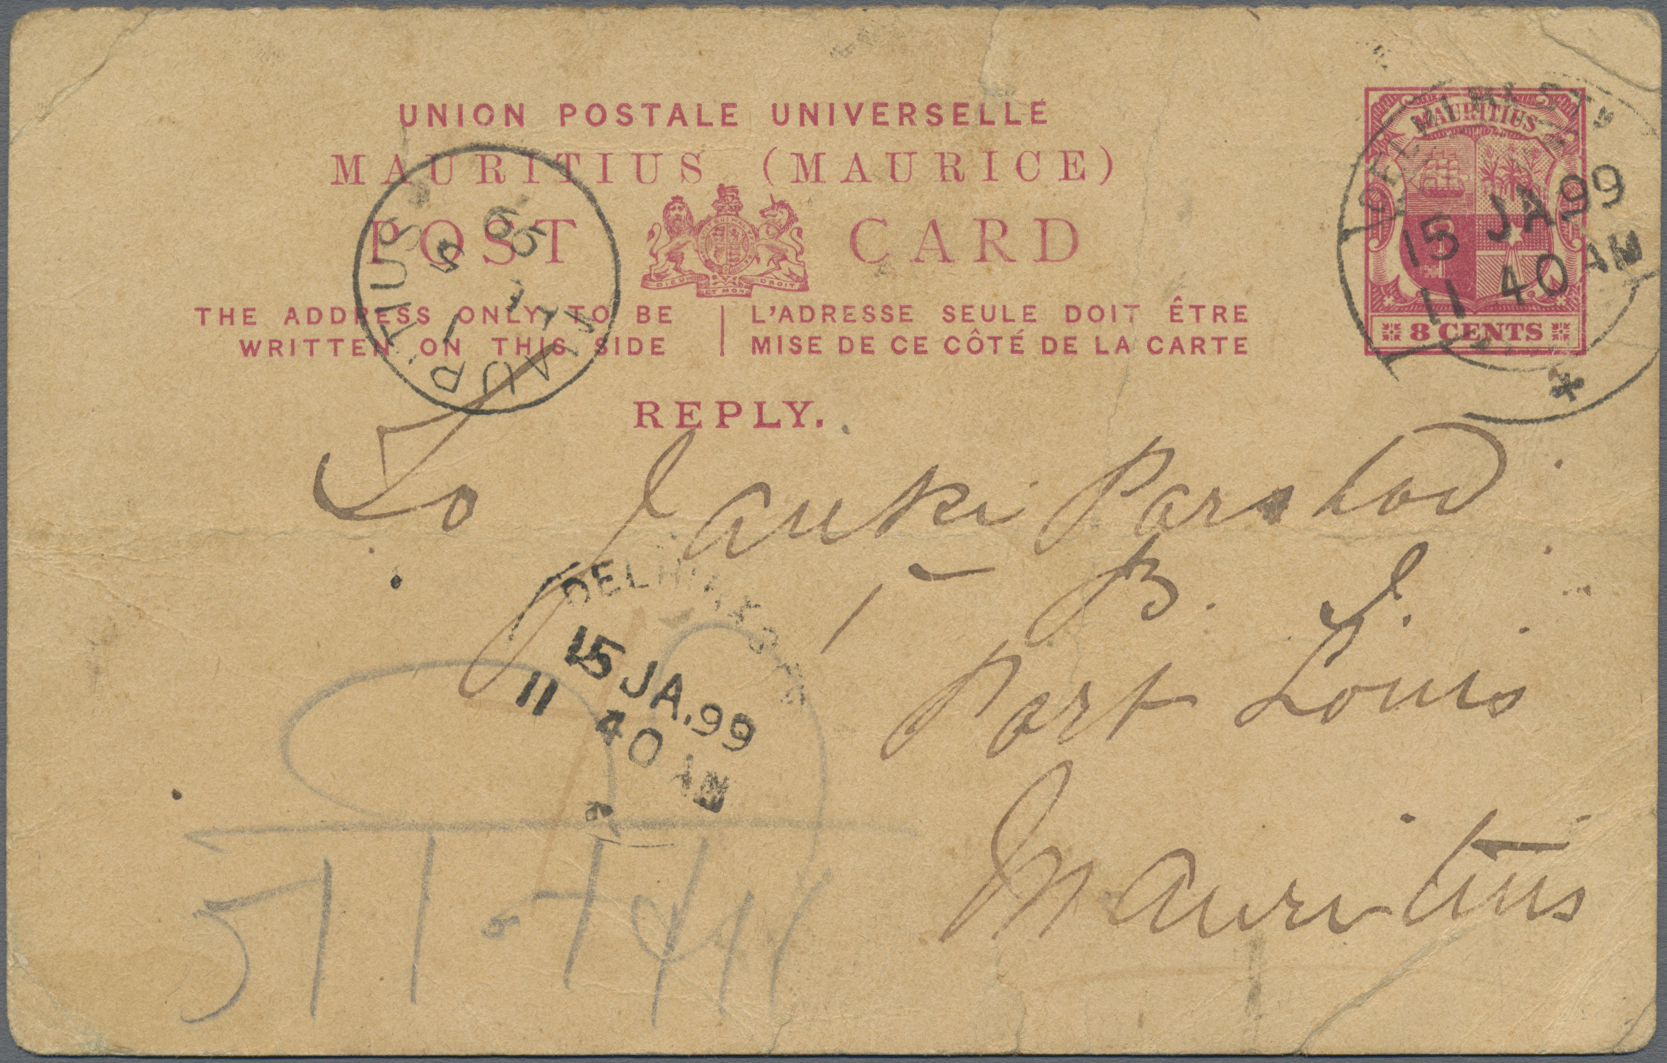 UNION POSTALE UNIVERSELLE
MAURITIUS (MAURICE)
POST CARD
DIEU ET MON DROIT
THE ADDRESS ONLY TO BE
WRITTEN ON THIS SIDE
L'ADRESSE SEULE DOIT ÊTRE
MISE DE CE CÔTÉ DE LA CARTE
REPLY.
MAURITIUS
8 CENTS
15 JA.99
11 40 AM
MAURITIUS
To Janki Parshad
B. J.
Port Louis
Mauritius
15 JA.99
11 40 AM